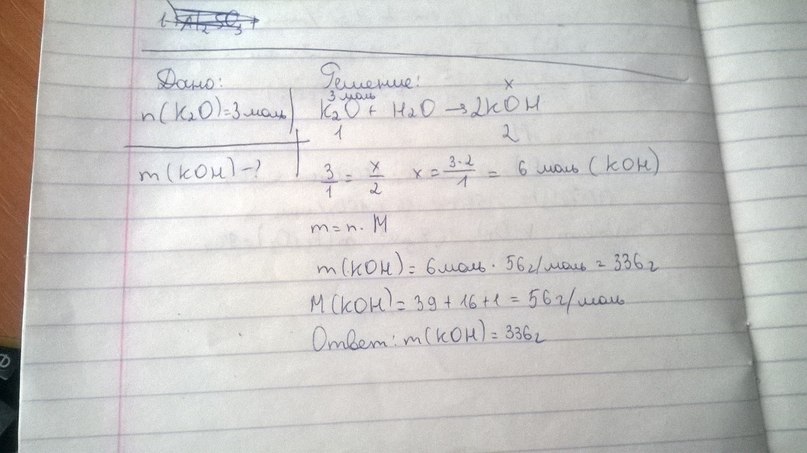 Дано:
n(K₂O)=3моль
m(KOH)-?
Решение:
3 моль x
K₂O + H₂O → 2KOH
1 2
3/1 = x/2 x = 3·2/1 = 6 моль (KOH)
m=n·M
m(KOH)=6моль·56г/моль=336г
M(KOH)=39+16+1=56г/моль
Ответ: m(KOH)=336г